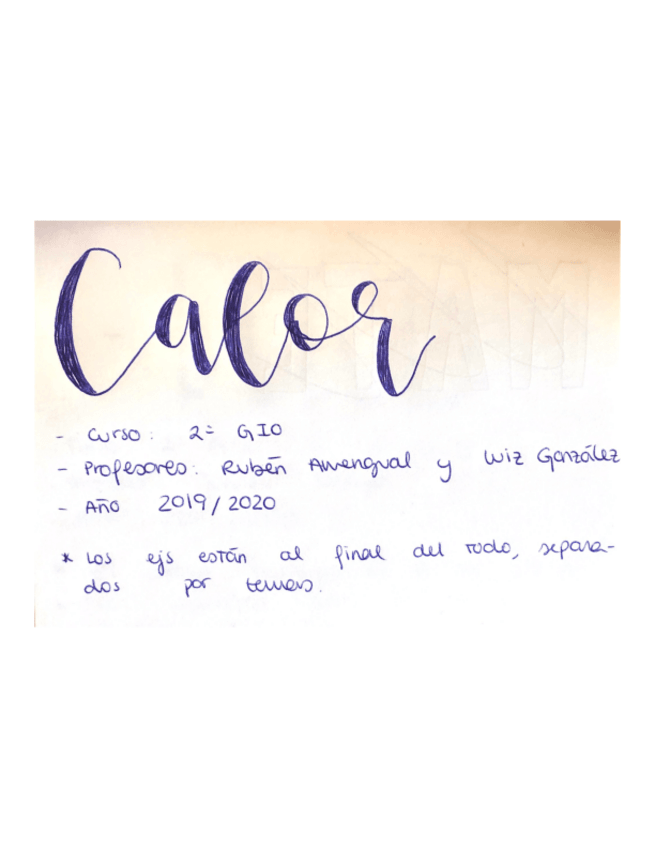 Calor
- Curso: 2º GIO
- Profesores: Rubén Amengual y Luiz González
- Año 2019/2020
* Los ejs están al final del todo, separa-
dos por temas.